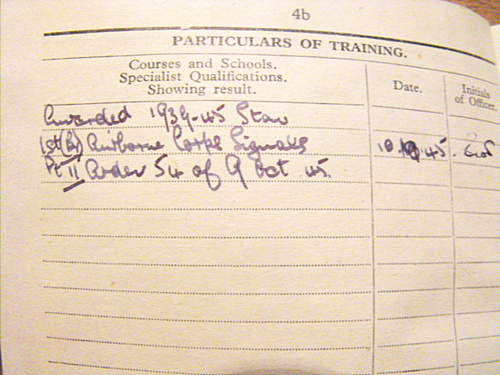 4b
PARTICULARS OF TRAINING.
Courses and Schools.
Specialist Qualifications.
Showing result.
Date.
Initials
of Officer.
Awarded 1939-45 Star
1st (Br) Airborne Corps Signals
Pt II Order 54 of 9 Oct 45.
10 45.